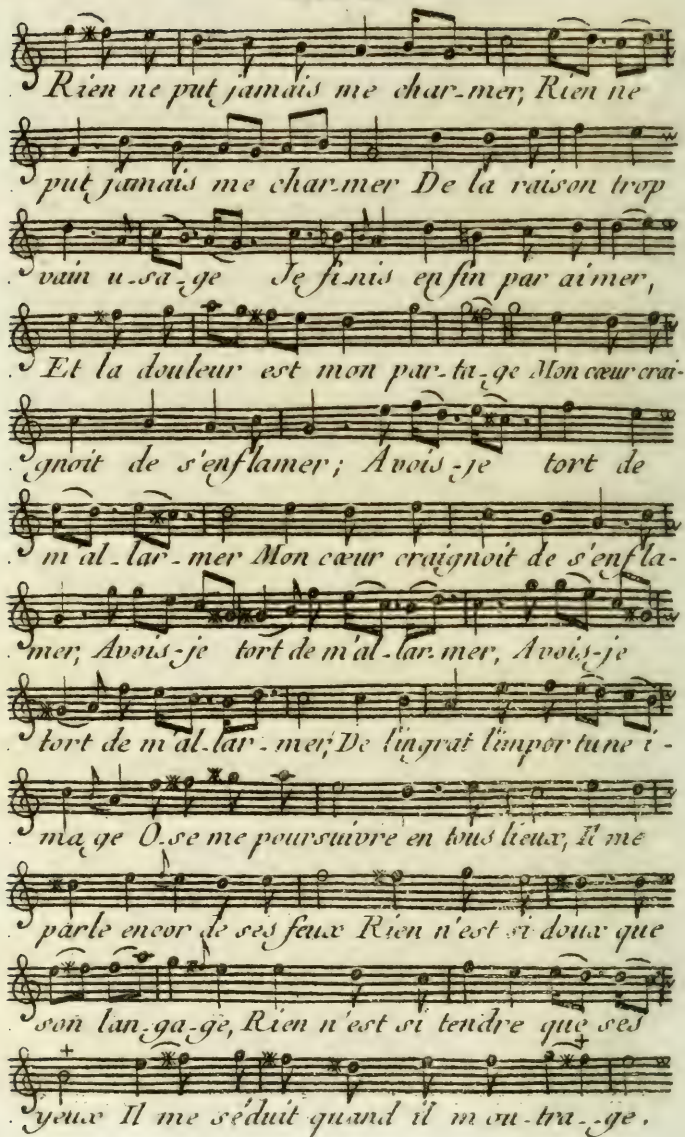 Rien ne put jamais me char-mer, Rien ne
put jamais me char-mer De la raison trop
vain u-sa-ge Je finis enfin par aimer,
Et la douleur est mon par-ta-ge Mon cœur crai-
gnoit de s'enflamer; Avois-je tort de
m'al-lar-mer Mon cœur craignoit de s'enfla-
mer, Avois-je tort de m'al-lar-mer, Avois-je
tort de m'al-lar-mer, De l'ingrat l'importune i-
ma ge O-se me poursuivre en tous lieux, Il me
parle encor de ses feux Rien n'est si doux que
son lan-ga-ge, Rien n'est si tendre que ses
yeux Il me séduit quand il m'ou-tra-ge.